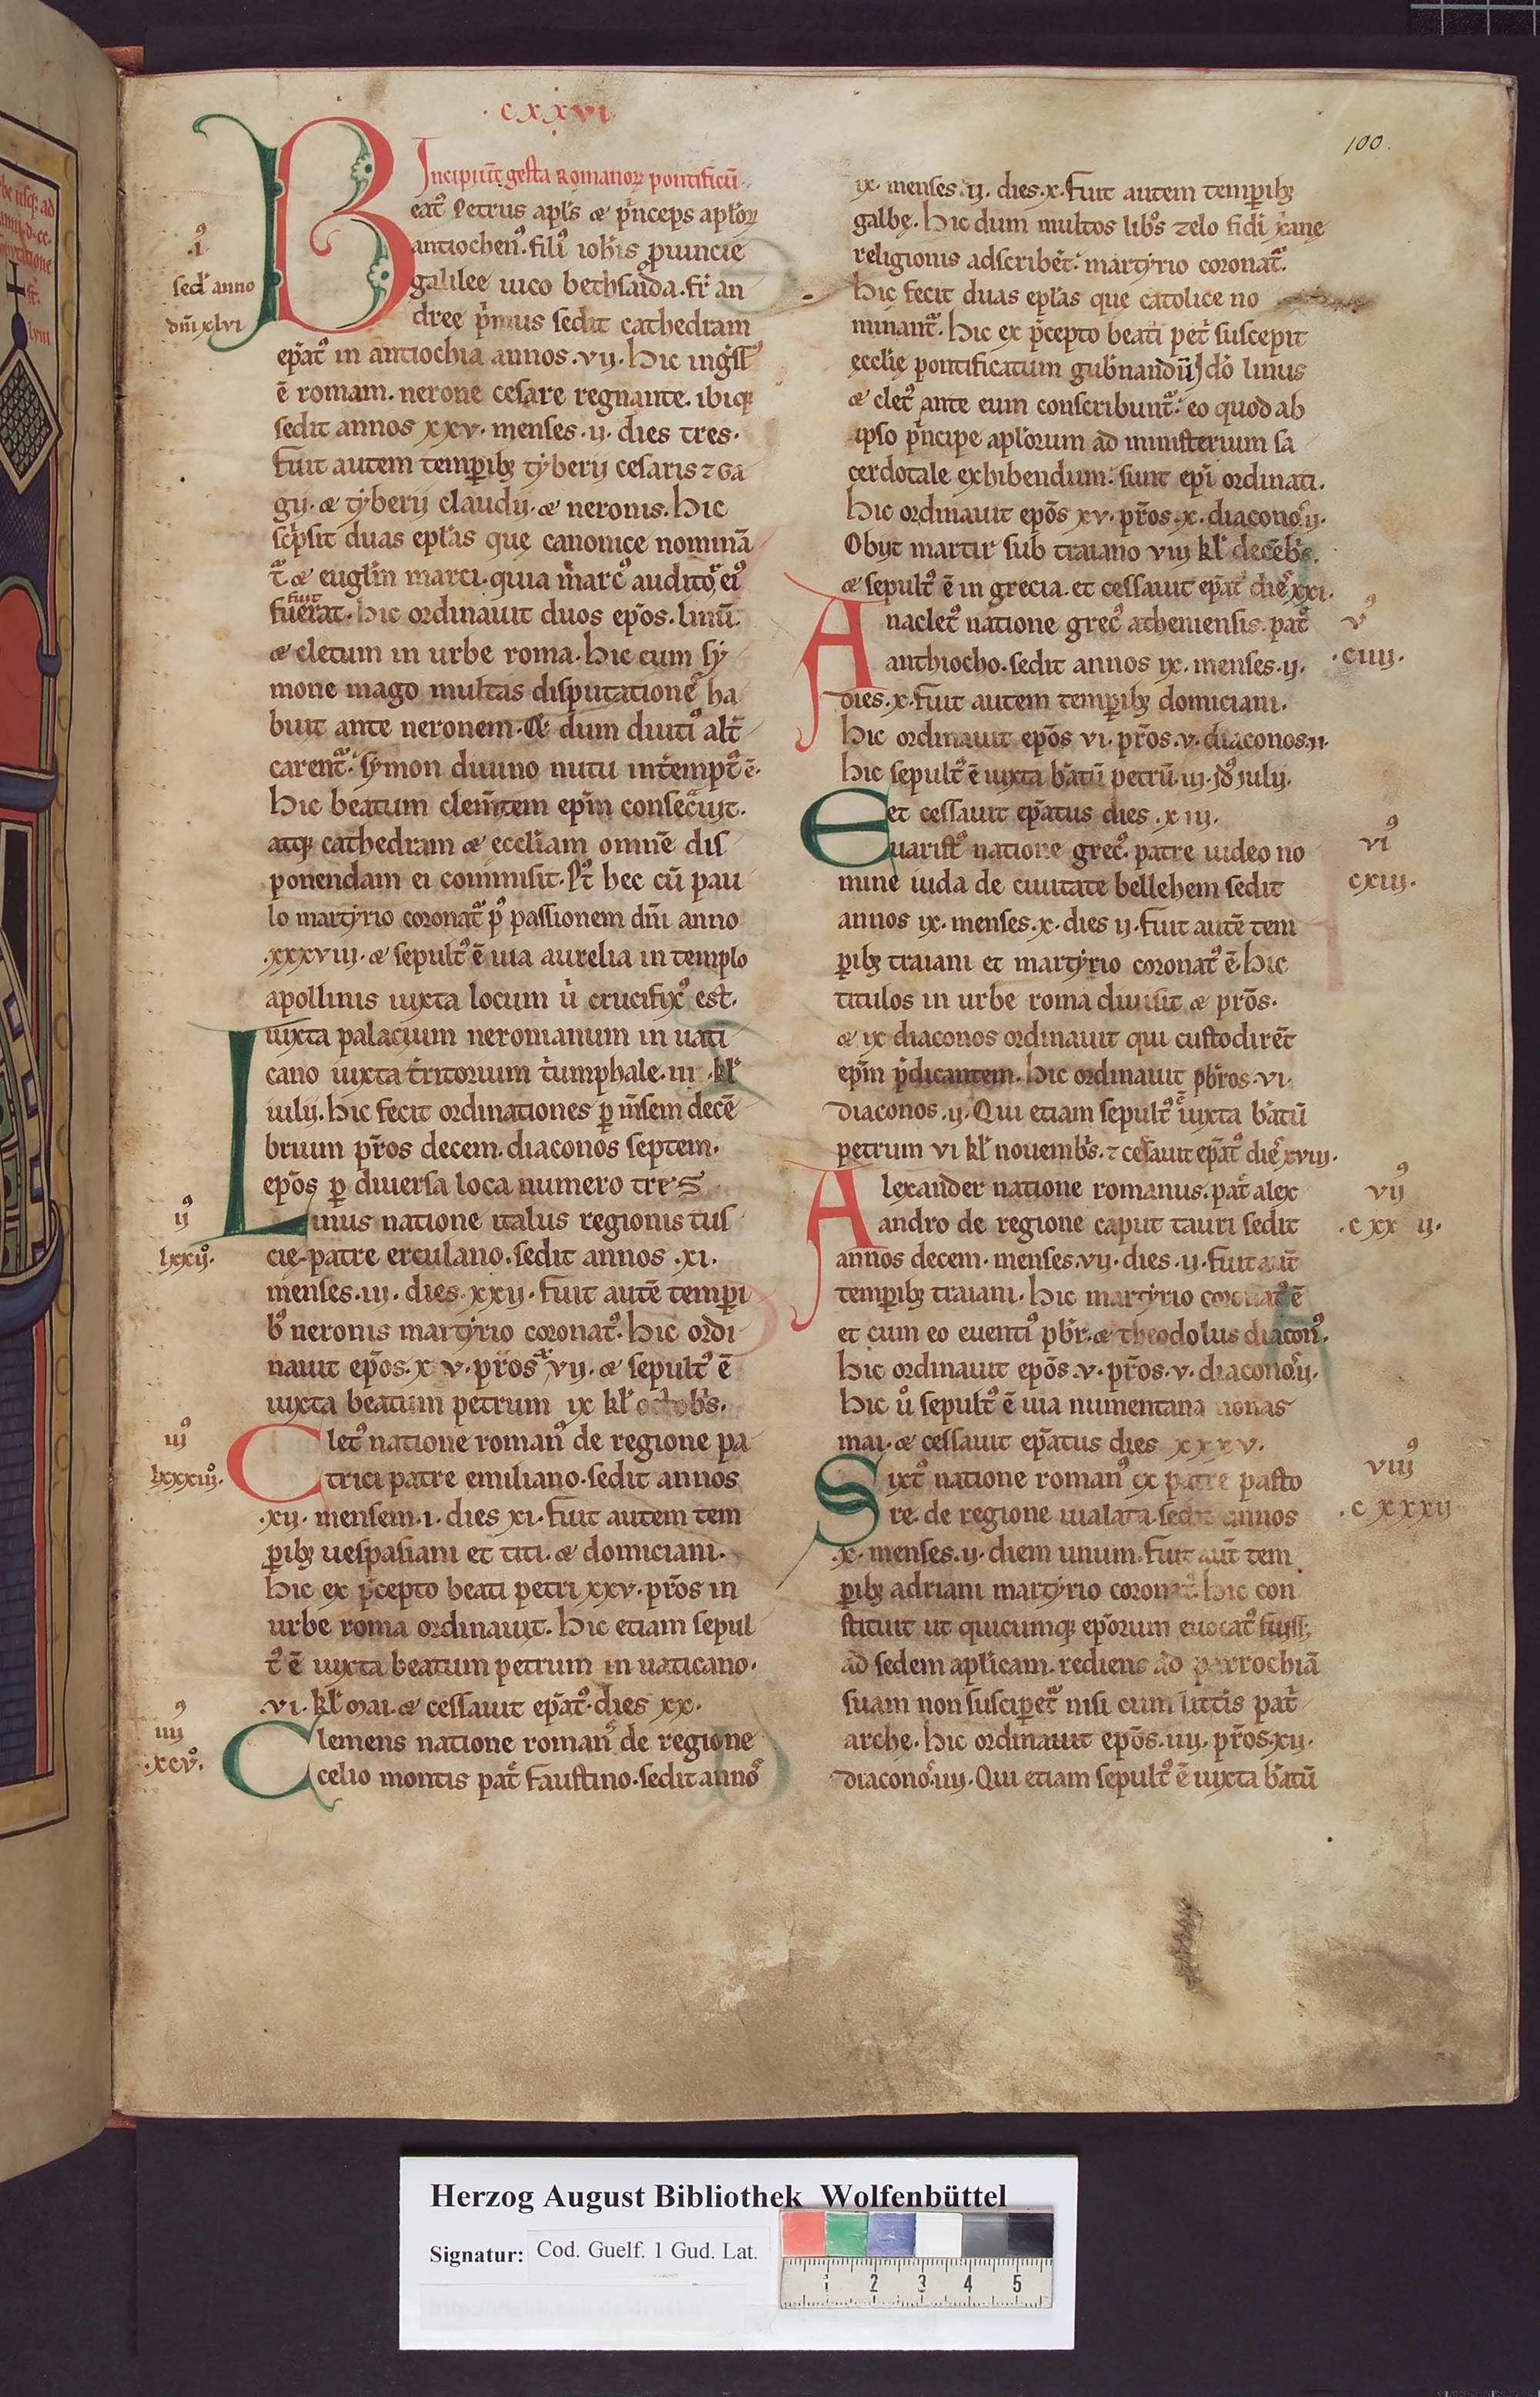 .cxxvi.
100.
Incipiūt gesta Romanoꝝ pontificū.
Beatꝰ Petrus apl's & p̄nceps aploꝝ
antiochenꝰ. filiꝰ ioh'is ꝓuincie
galilee uico bethsaida. fr̄ an
dree p̄mus sedit cathedram
ep̄atꝰ in antiochia annos .vii. hic ingssꝰ
ē romam. nerone cesare regnante. ibiqꝫ
sedit annos xxv. menses .ii. dies tres.
fuit autem temꝑibꝫ tyberii cesaris ⁊ ga
gii. & tyberii claudii. & neronis. hic
sc̄psit duas ep̄las que canonice nominā
t̄. & eugl'm marci. quia marcꝰ auditor eiꝰ
fuit
fuerat. hic ordinauit duos ep̄os. linū.
& cletum in urbe roma. hic cum sy
mone mago multas disputationes ha
buit ante neronem. & dum diutiꝰ alt̄
carent̄. symon diuino nutu int̄emptꝰ ē.
hic beatum clem̄tem ep̄m consec̄uit.
atqꝫ cathedram & eccl'iam omnē dis
ponendam ei commisit. P̄t hec cū pau
lo martyrio coronat̄ pꝰ passionem dn̄i anno
.xxxviii. & sepultꝰ ē uia aurelia in templo
apollinis iuxta locum u̇ crucifixꝰ est.
iuxta palacium neronianum in uati
cano iuxta t̄ritorium t̄umphale. iii. kl'
iulii. hic fecit ordinationes ꝑ m̄sem decē
brium pr̄os decem. diaconos septem.
ep̄os ꝑ diuersa loca numero tres
Linus natione italus regionis tus
cię. patre erculano. sedit annos .xi.
menses .iii. dies .xxii. fuit autē temꝑi
bꝰ neronis martyrio coronatꝰ. hic ordi
nauit ep̄os .xv. pr̄os vii. & sepultꝰ ē
iuxta beatum petrum ix kl' octob's.
Cletꝰ natione romanꝰ de regione pa
trici patre emiliano. sedit annos
.xii. mensem .i. dies xi. fuit autem tem
ꝑibꝫ uespasiani et titi. & domiciani.
hic ex p̄cepto beati petri xxv. pr̄os in
urbe roma ordinauit. hic etiam sepul
tꝰ ē iuxta beatum petrum in uaticano.
.vi. kl' mai. & cessauit ep̄atꝰ. dies xx.
Clemens natione romanꝰ de regione
celio montis pat̄ faustino. sedit annoˢ
.iꝰ
sed' anno
dn̄i xlvi
iiꝰ
lxxiiꝰ.
iiiꝰ
lxxxiiiꝰ.
iiiiꝰ
.xcvꝰ.
ix. menses .ii. dies .x. fuit autem temꝑibꝫ
galbę. hic dum multos lib'os zelo fidei xp̄iane
religionis adscribēt. martyrio coronat̄.
hic fecit duas ep̄las que catolice no
minant̄. hic ex p̄cepto beati pet̄ suscepit
ęccl'ię pontificatum gub'nandū. Idō linus
& cletꝰ ante eum conscribunt̄. eo quod ab
ipso p̄ncipe apl'orum ad ministerium sa
cerdotale exhibendum. sunt ep̄i ordinati.
hic ordinauit ep̄os xv. pr̄os .x. diaconoˢ .ii.
Obiit martir sub traiano viii kl' decēb's.
& sepultꝰ ē in grecia. et cessauit ep̄atꝰ dieˢ xxi.
Anacletꝰ natione grecꝰ atheniensis. pat̄
anthiocho. sedit annos ix. menses .ii.
dies .x. fuit autem temꝑibꝫ domiciani.
hic ordinauit ep̄os vi. pr̄os .v. diaconos .ii.
hic sepultꝰ ē iuxta b'atū petrū. iii. idꝰ iulii.
et cessauit ep̄atus dies .xiii.
Euaristꝰ natione grecꝰ. patre iudeo no
mine iuda de ciuitate bellehem sedit
annos ix. menses .x. dies ii. fuit autē tem
ꝑibꝫ traiani et martyrio coronatꝰ ē. hic
titulos in urbe roma diuisit & pr̄os.
& ix diaconos ordinauit qui custodirēt
ep̄m p̄dicantem. hic ordinauit pb'ros .vi.
diaconos .ii. Qui etiam sepultꝰ ē iuxta b'atū
petrum vi kl' nouemb's. ⁊ cessauit ep̄atꝰ dieˢ xviii.
Alexander natione romanus. pat̄ alex
andro de regione caput tauri sedit
annos decem. menses .vii. dies .ii. fuit aūt
temꝑibꝫ traiani. hic martyrio coronatꝰ ē
et cum eo euentiꝰ pb'r. & theodolus diaconꝰ.
hic ordinauit ep̄os .v. pr̄os .v. diaconoˢ .ii.
hic u̇ sepultꝰ ē uia numentana nonas
mai. & cessauit ep̄atus dies xxxv.
Sixtꝰ natione romanꝰ ex patre pasto
re. de regione uialata. sedit annos
.x. menses .ii. diem unum. fuit aūt tem
ꝑibꝫ adriani martyrio coronatꝰ. hic con
stituit ut quicumqꝫ ep̄orum euocatꝰ fuiss;
ad sedem apl'icam. rediens ad parrochiā
suam non suscipet̄ nisi cum litt̄is pat̄
arche. hic ordinauit ep̄os .iiii. pr̄os .xii.
diaconoˢ .iiii. Qui etiam sepultꝰ ē iuxta b'atū
vꝰ
.ciiii.
viꝰ
cxiii.
viiꝰ
.cxx ii.
viiiꝰ
.cxxxii
Herzog August Bibliothek Wolfenbüttel
Signatur: Cod. Guelf. 1 Gud. Lat.
1 2 3 4 5